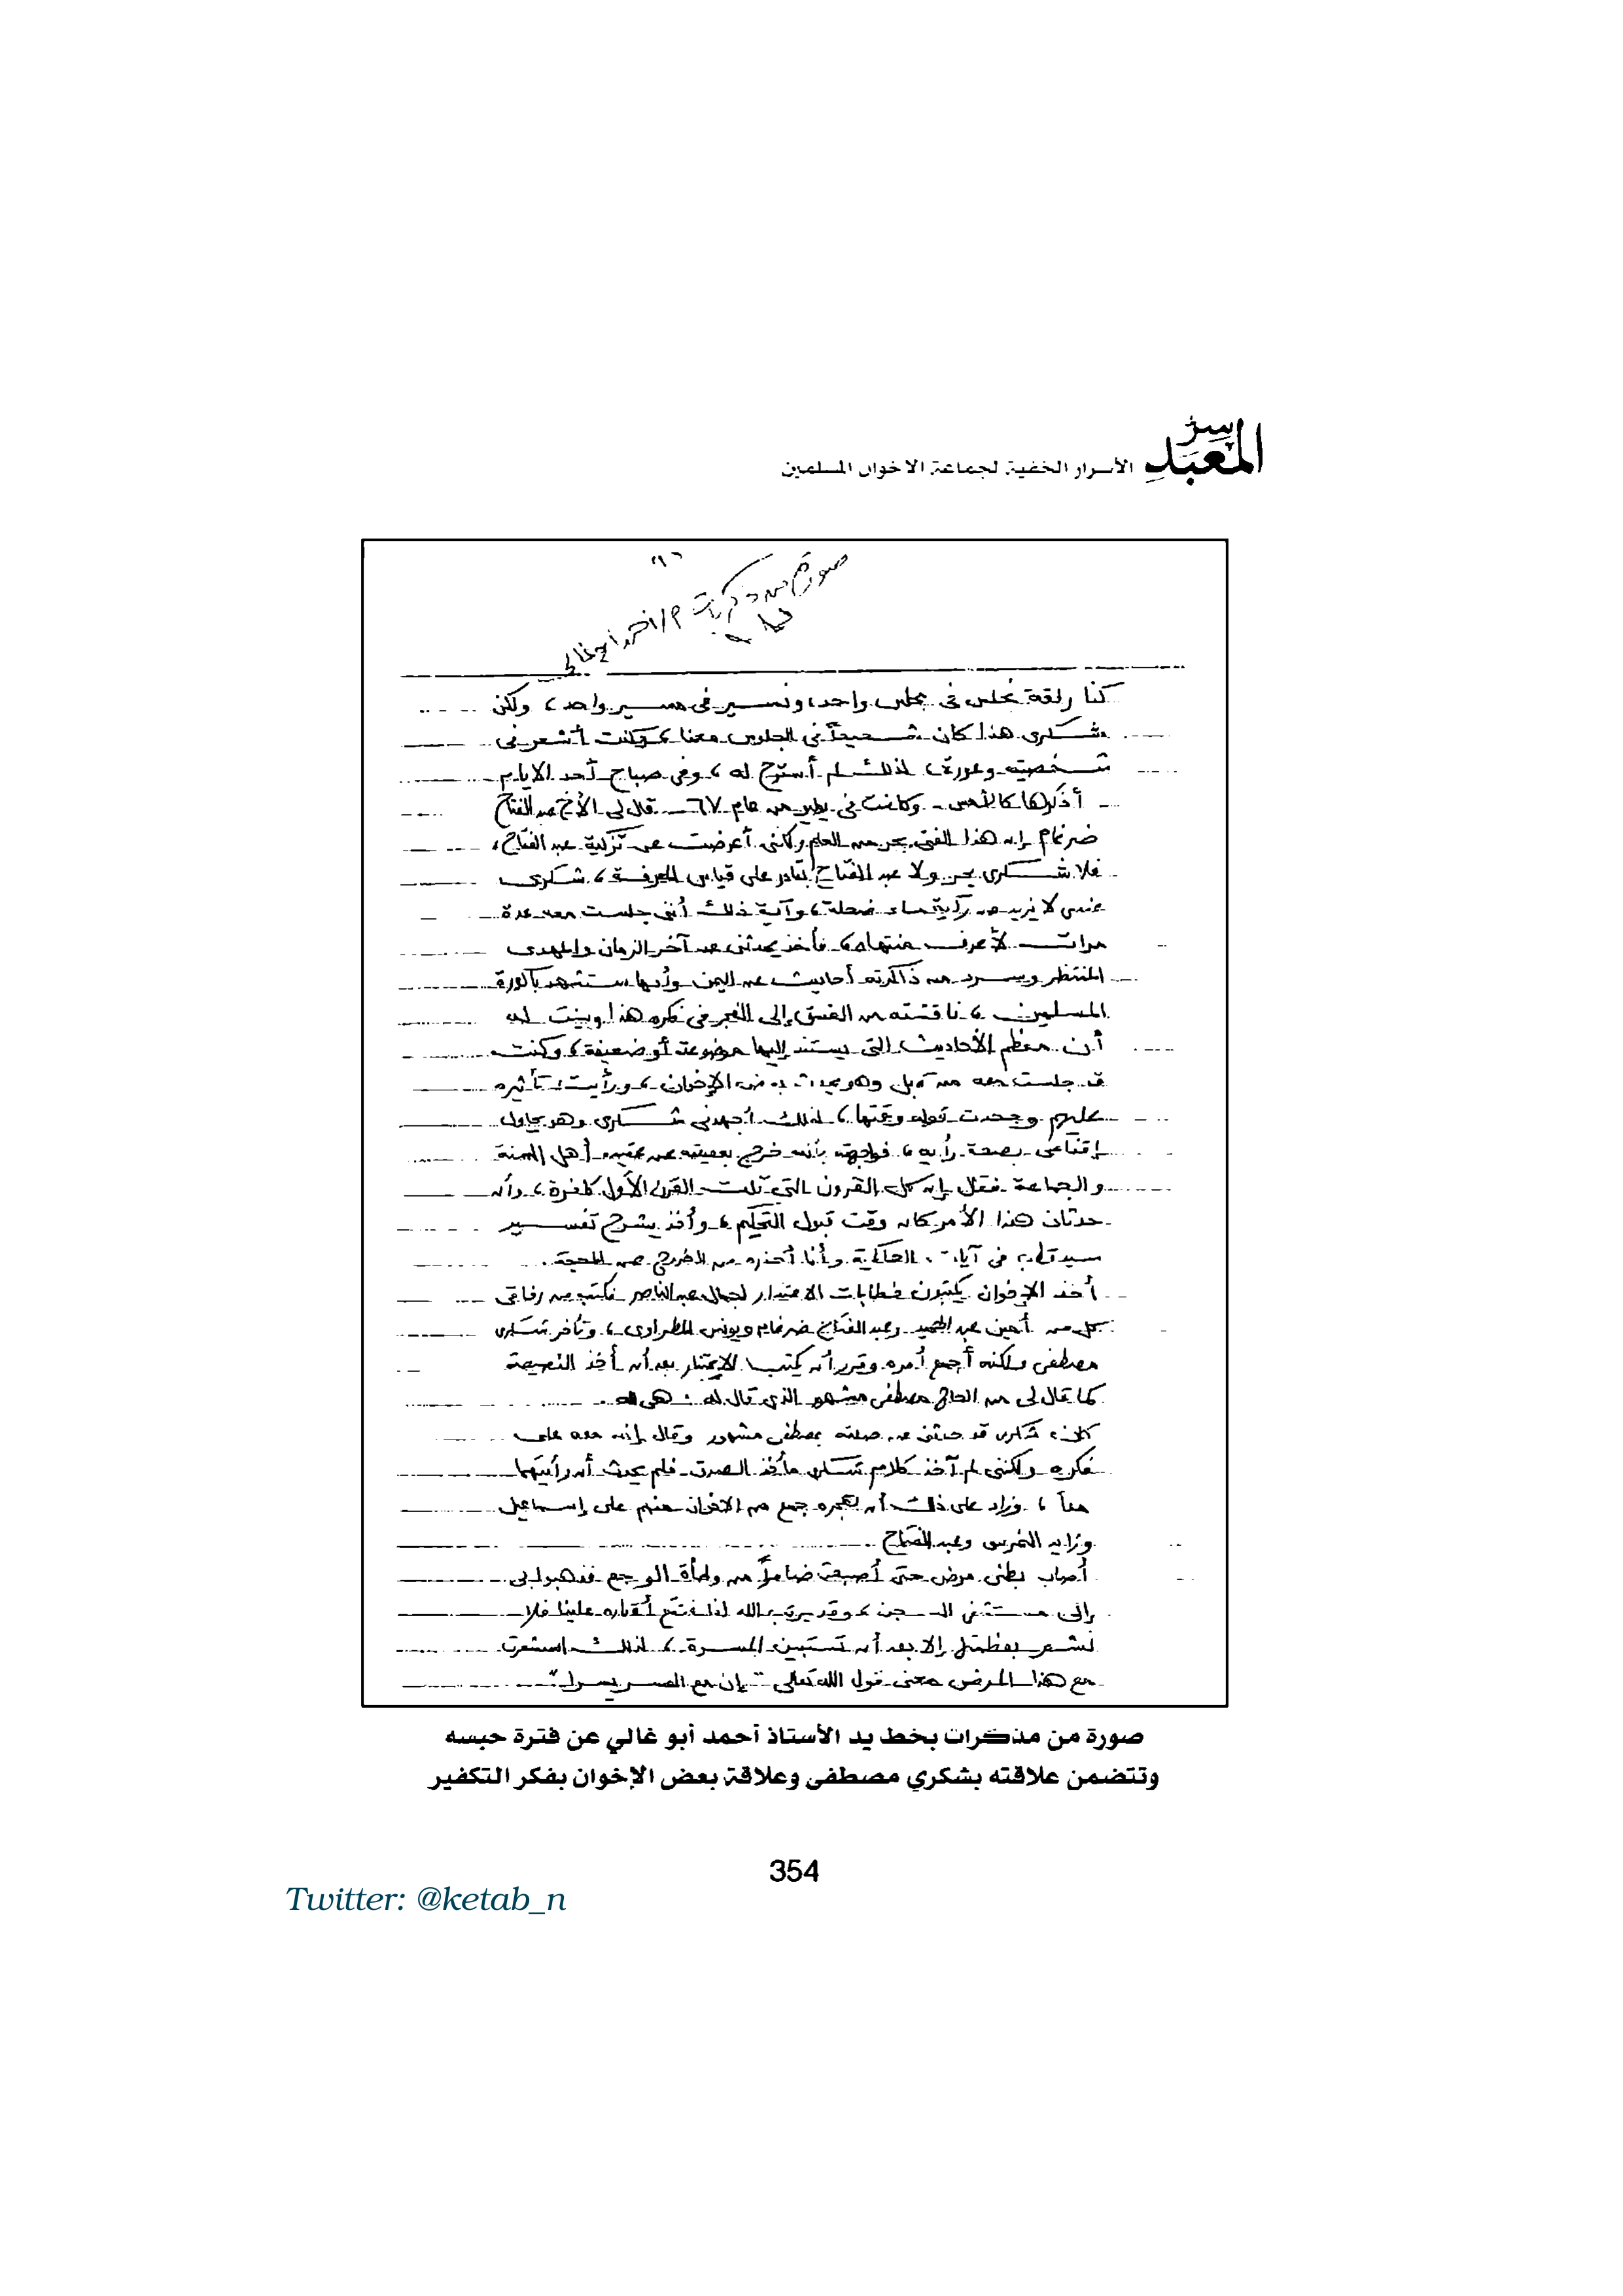 سر
المعبد
الأسرار الخفية لجماعة الاخوان المسلمين
صورة من ذكريات أ/ أحمد أبو غالى
كنا رفقة نجلس فى مجلس واحد، ونسير فى مسير واحد، ولكن
شكرى هذا كان شحيحاً فى الجلوس معنا، وكنت أشعر فى
شخصيته وعورة، لذلك لم أسترح له، وفى صباح أحد الأيام
أذكرها كالأمس - وكانت فى يناير من عام ٦٧ - قال لى الأخ عبد الفتاح
ضرغام إن هذا الفتى بحر من العلم ولكنى أعرضت عن تزكية عبد الفتاح،
فلا شكرى بحر ولا عبد الفتاح بقادر على قياس المعرفة، شكرى
عندى لا يزيد عن ماء ضحلة، وآية ذلك أننى جلست معه عدة
مرات لأعرف منتهاه، فأخذ يحدثنى عن آخر الزمان والمهدى
المنتظر ويسرد من ذاكرته أحاديث عن اليمن وأنها ستشهد
المسلمين، ناقشته من الغسق إلى الفجر فى فكره هذا وبينت له
أن معظم الأحاديث التى يستند إليها موضوعة أو ضعيفة، وكنت
قد جلست معه من قبل وهو يحدث بعض الإخوان، ورأيت تأثيره
عليهم لذلك أجهدنى شكرى وهو يحاول
إقناعى بصحة رأيه، فواجهته بأنه خرج بعقيدته عن عقيدة أهل السنة
والجماعة فقال إن كل القرون التى تلت القرن الأول كافرة، وأن
حدثان هذا الأمر كان وقت قبول التحكيم، وأخذ يشرح تفسير
سيد قطب فى آيات الحاكمية وأنا أحذره من الخروج عن المحجة.
أخذ الإخوان يكتبون خطابات الاعتذار لجمال عبد الناصر فكتب من رفاقى
كل من أمين عبد الحميد وعبد الفتاح ضرغام ويونس المطراوى، وتأخر شكرى
مصطفى ولكنه أجمع أمره وقرر أن يكتب الاعتذار بعد أن أخذ النصيحة
كما قال لى من الحاج مصطفى مشهور الذى قال له :
كان شكرى قد حدثنى عن صلته بمصطفى مشهور وقال إنه معه على
فكره ولكننى لم آخذ كلام شكرى مأخذ الصدق فلم يحدث أن رأيتهما
معاً، وزاد على ذلك أن جمع من الإخوان منهم على إسماعيل
وعبد الفتاح
أصاب بطنى مرض حتى أصبحت ضامراً من وطأة الوجع فذهبوا بى
إلى مستشفى السجن، وقد يرتب الله لنا فتقع أقداره علينا فلا
نشعر بعظمتها إلا بعد أن تستبين المسرة، لذلك استشعرت
مع هذا المرض معنى قول الله تعالى "إن مع العسر يسرا"
صورة من مذكرات بخط يد الأستاذ أحمد أبو غالي عن فترة حبسه
وتتضمن علاقته بشكري مصطفى وعلاقة بعض الإخوان بفكر التكفير
354
Twitter: @ketab_n